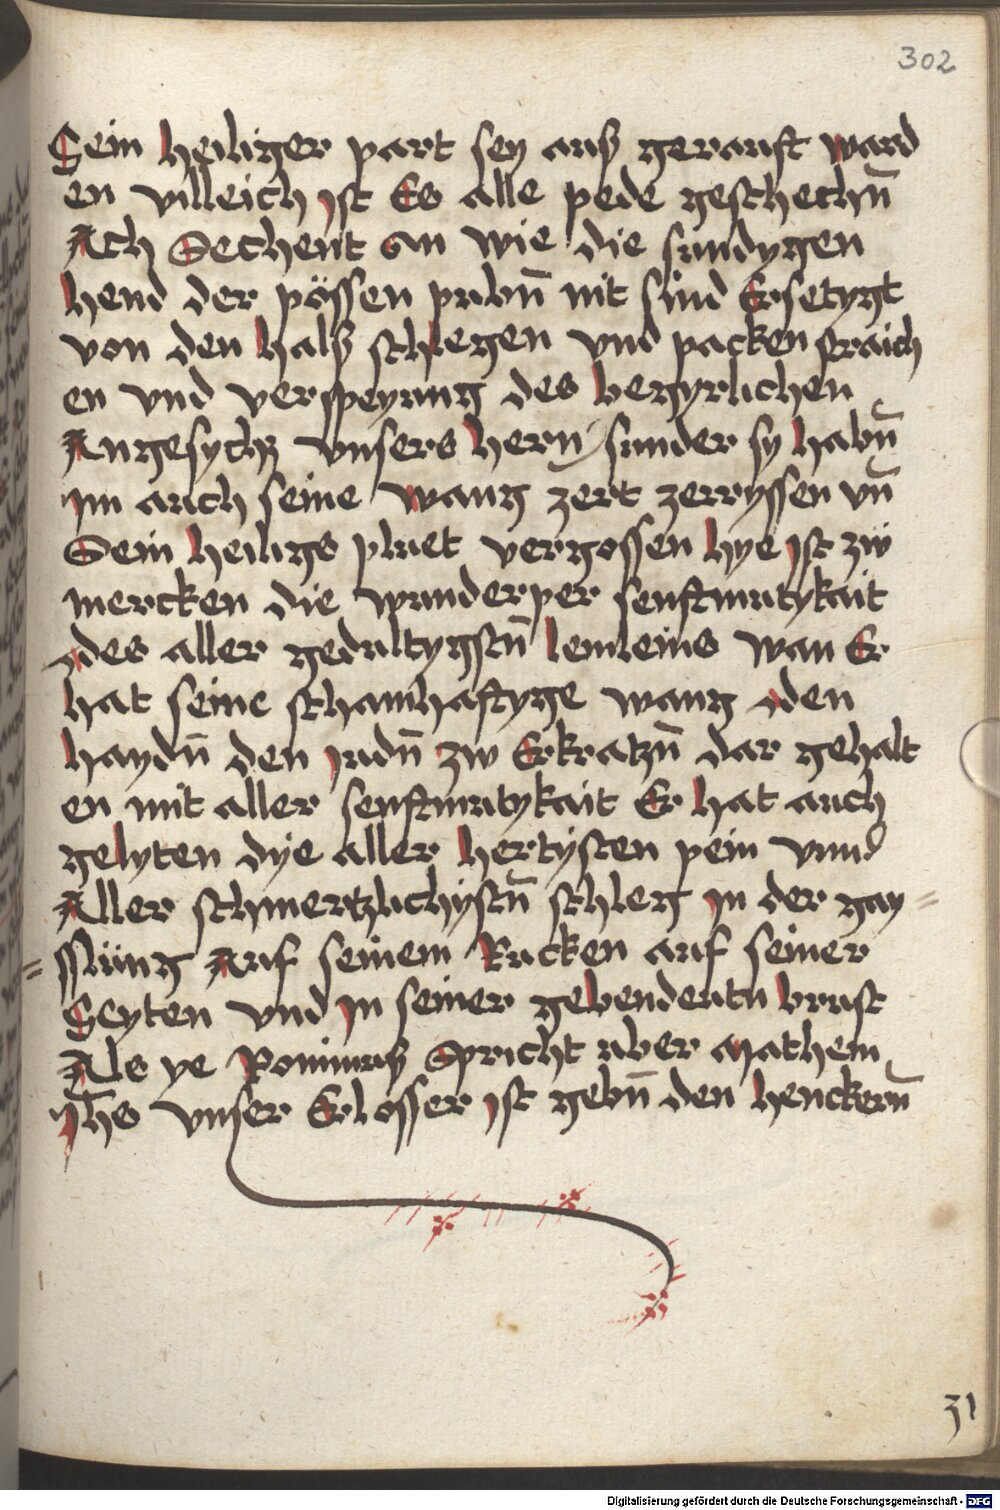 302
Sein heiliger part sey auß gerauft ward
en villeich ist Es alle pede geschechn̄
Ach Sechent an wie die sundygen
hend der pössen pubn̄ nit sind Ersetygt
von den halß schlegen vnd packen straich
en vnd verspeyung des begyrlichen
Angesycht vnsers hern / sunder sy habn̄
im auch seine wang zert zerryssen vn̄
Sein heiligs pluet vergossen hye ist zw
mercken die wunderper senftmutykait
des aller gedultygstn̄ lemleins wan Er
hat seine schamhaftyge wang den
haydn̄ den judn̄ zw Erkratzn̄ dar gehalt
en mit aller senftmutykait Er hat auch
gelyten dye aller hertisten pein vnnd
Aller schmertzlichystn̄ schleg in der gay=
=sslung Auf seinem Rucken auf seiner
Seyten vnd in seiner gebendeitn brust
Als ye Ponimuß Spricht uber Mathem
jhs vnser Erlosser ist gebn̄ den henckern̄
31
Digitalisierung gefördert durch die Deutsche Forschungsgemeinschaft - DFG